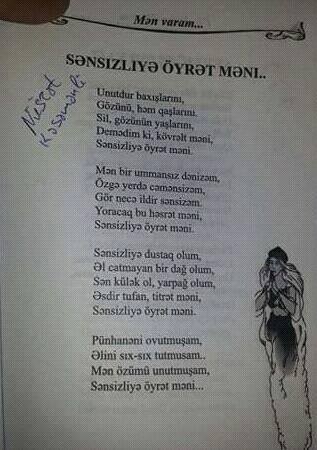 Mən varam...
SƏNSIZLIYƏ ÖYRƏT MƏNI..
Nüsrət
Kəsəmənli
Unutdur baxışlarını,
Gözünü, həm qaşlarını.
Sil, gözünün yaşlarını,
Demədim ki, kövrəlt məni,
Sənsizliyə öyrət məni.
Mən bir ummansız dənizəm,
Özgə yerdə cəmənsizəm,
Gör necə ildir sənsizəm.
Yoracaq bu həsrət məni,
Sənsizliyə öyrət məni.
Sənsizliyə dustaq olum,
Əl catmayan bir dağ olum,
Sən külək ol, yarpağ olum,
Əsdir tufan, titrət məni,
Sənsizliyə öyrət məni.
Pünhanəni ovutmuşam,
Əlini sıx-sıx tutmusam..
Mən özümü unutmuşam,
Sənsizliyə öyrət məni...